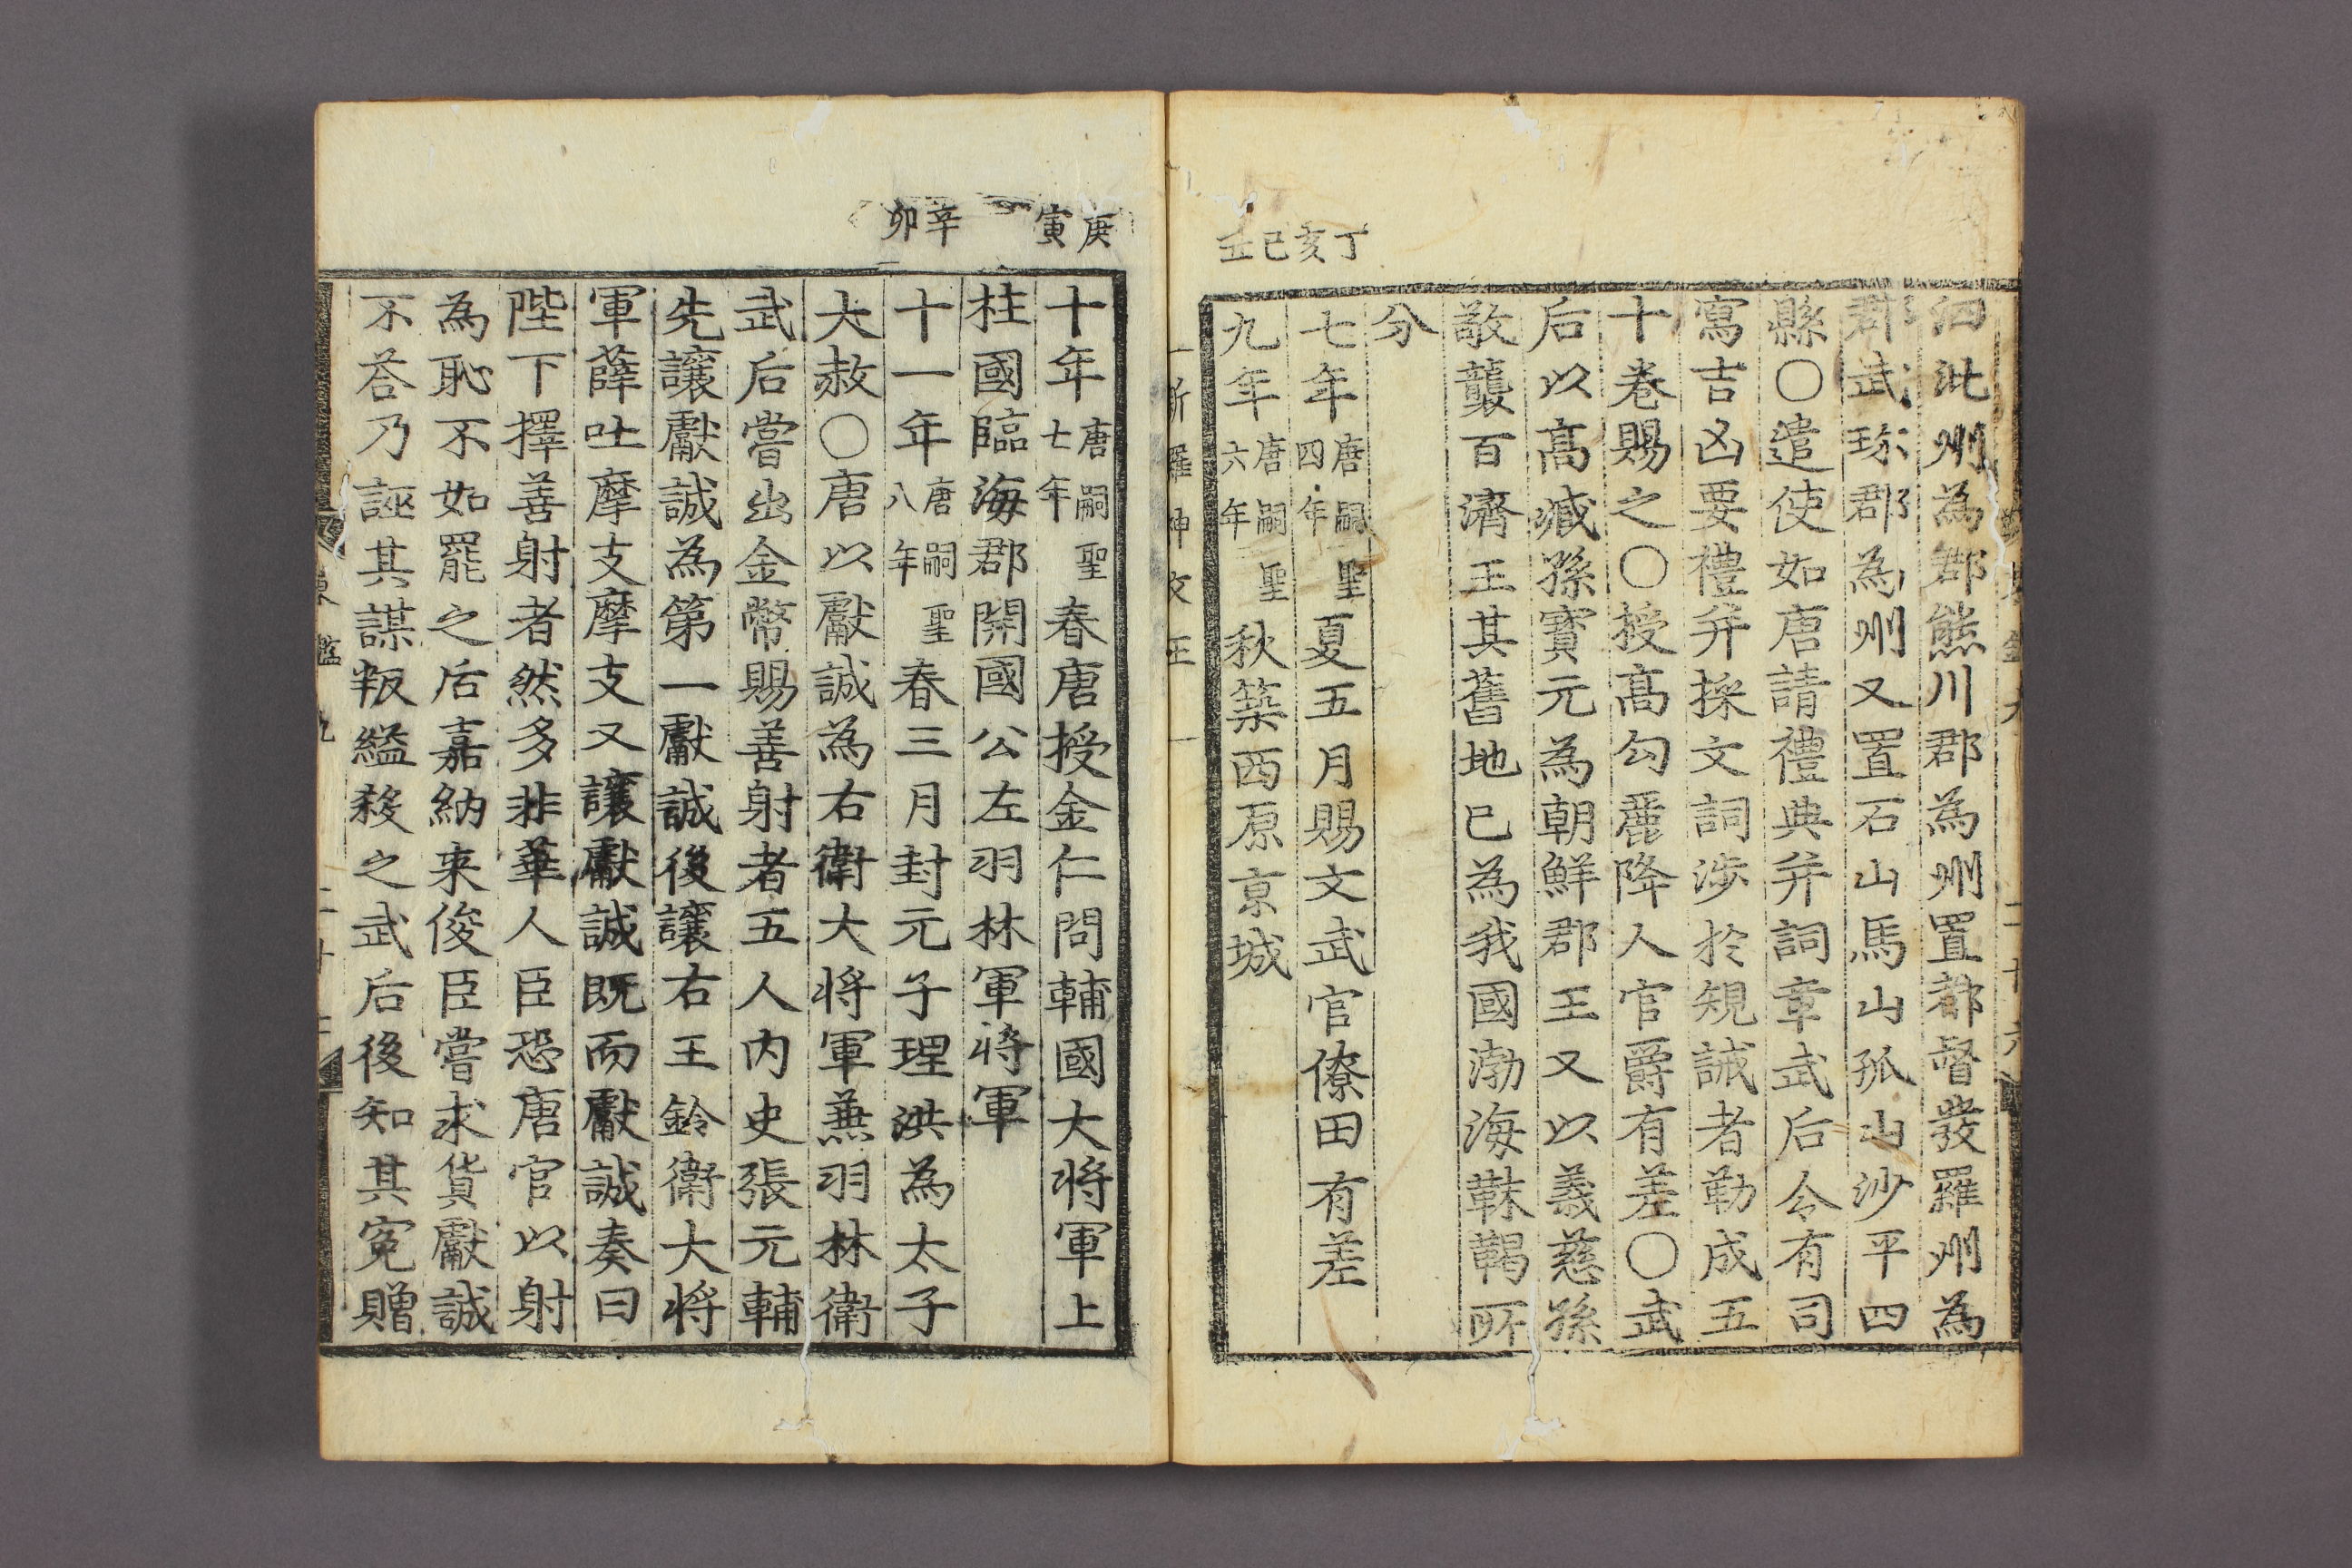 泗沘州為郡熊川郡為州置都督發羅州為
郡武珍郡為州又置石山馬山孤山沙平四
縣○遣使如唐請禮典并詞章武后令有司
寫吉凶要禮并採文詞涉於規誡者勒成五
十卷賜之○授高勾麗降人官爵有差○武
后以高臧孫寶元為朝鮮郡王又以義慈孫
敬襲百濟王其舊地已為我國渤海靺鞨所
分
丁亥
七年唐嗣聖四年夏五月賜文武官僚田有差
己丑
九年唐嗣聖六年秋築西原京城
新羅神文王
庚寅
十年唐嗣聖七年春唐授金仁問輔國大將軍上
柱國臨海郡開國公左羽林軍將軍
辛卯
十一年唐嗣聖八年春三月封元子理洪為太子
大赦○唐以獻誠為右衛大將軍兼羽林衛
武后嘗出金幣賜善射者五人內史張元輔
先讓獻誠為第一獻誠後讓右王鈐衛大將
軍薛吐摩支摩支又讓獻誠既而獻誠奏曰
陛下擇善射者然多非華人臣恐唐官以射
為恥不如罷之后嘉納来俊臣嘗求貨獻誠
不荅乃誣其謀叛縊殺之武后後知其冤贈